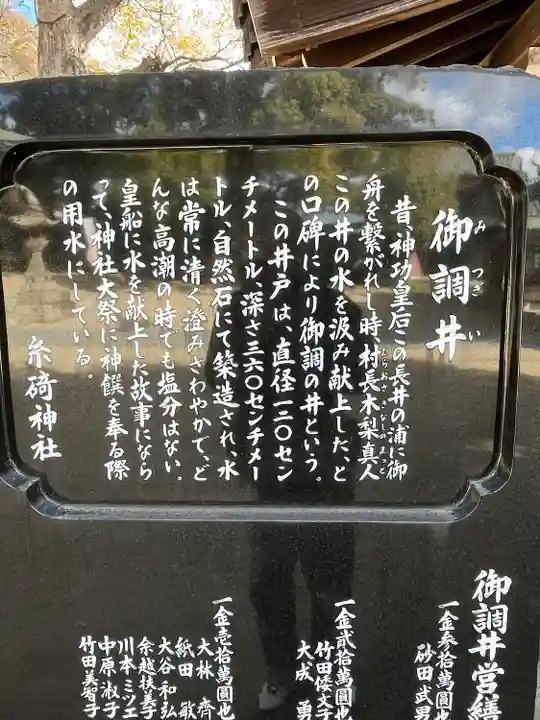 御調井
みつぎい
昔、神功皇后この長井の浦に御
舟を繋がれし時、村長木梨真人
むらおさきなしのまっと
この井の水を汲み献上した、と
の口碑により御調の井という。
この井戸は、直径一二〇セン
チメートル、深さ三六〇センチメー
トル、自然石にて築造され、水
は常に清く澄みさわやかで、ど
んな高潮の時でも塩分はない。
皇船に水を献上した故事になら
って、神社大祭に神饌を奉る際
の用水にしている。
糸碕神社
御調井営繕
一金参拾萬圓也
砂田武男
一金貳拾萬圓也
竹田倭文子
大成勇
一金壱拾萬圓也
大林齊
紙田敏
大谷和弘
余越扶美子
川本ミツエ
中原淑子
竹田美智子